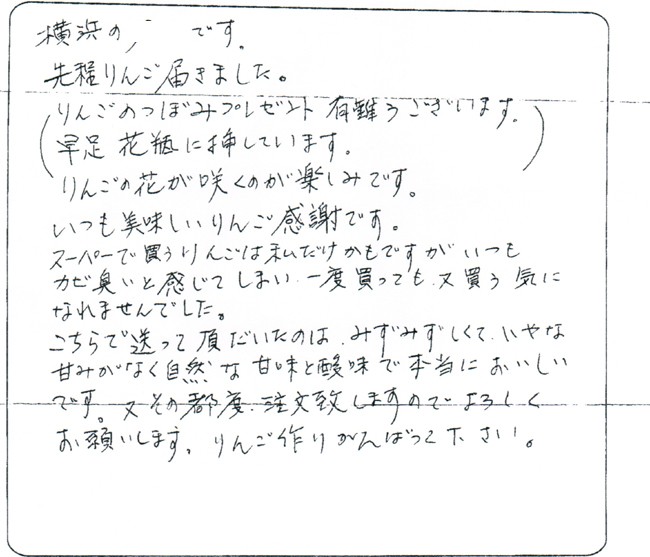 横浜の です。
先程りんご届きました。
りんごのつぼみプレゼント 有難うございます。
早足 花瓶に挿しています。
りんごの花が咲くのが楽しみです。
いつも美味しいりんご感謝です。
スーパーで買うりんごは私だけかもですが いつも
カビ臭いと感じてしまい、一度買っても、又買う 気に
なれませんでした。
こちらで送って頂だいたのは、みずみずしくて、いやな
甘みがなく自然な甘味と酸味で本当においしい
です。又その都度、注文致しますのでよろしく
お願いします。りんご作りがんばって下さい。